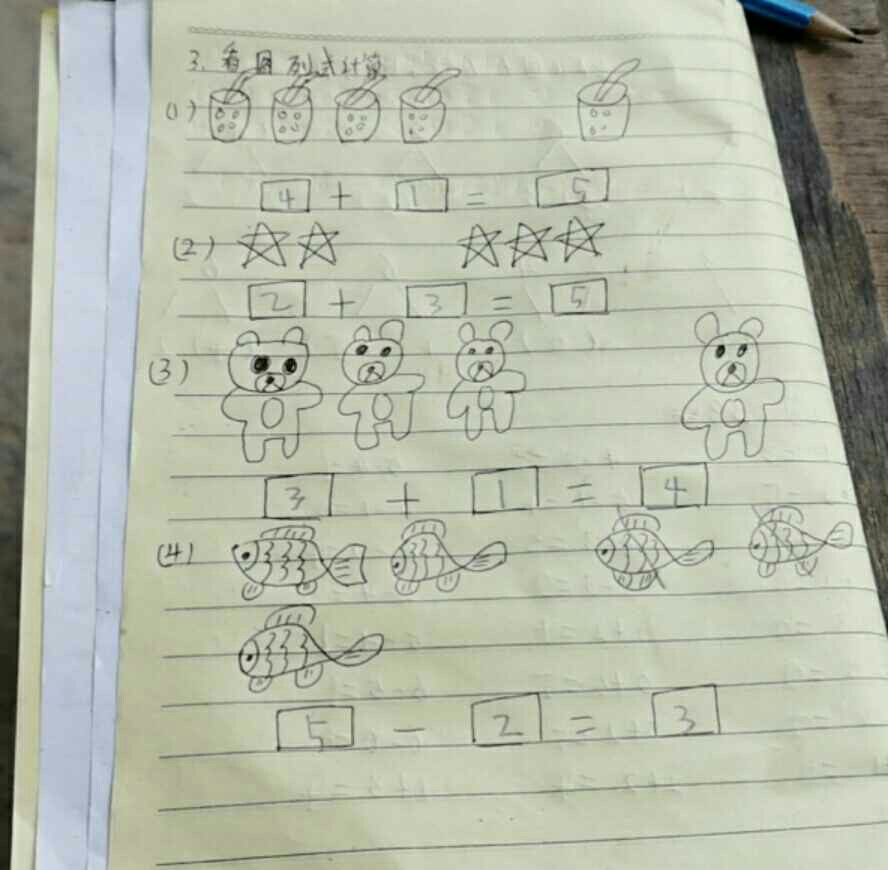 3. 看图列式计算
(1)
4 + 1 = 5
(2)
2 + 3 = 5
(3)
3 + 1 = 4
(4)
5 - 2 = 3